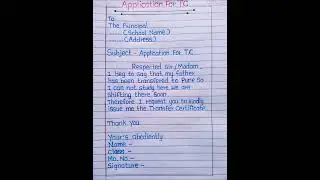 Application For TC
To
The Principal
......(School Name)
......(Address)
Subject - Application For T.C
Respected Sir/Madam,
I beg to say that my father
has been transfered to Pune So
I can not study here we are
shifting there soon.
Therefore I request you to kindly
issue me the Transfer Certificate.
Thank you
Your's obediently
Name -
Class -
Mo. No -
Signature -